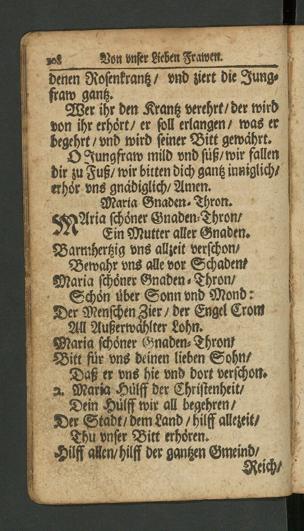 308 Von vnser Lieben Frawen.
denen Rosenkrantz / vnd ziert die Jung-
fraw gantz.
Wer ihr den Krantz verehrt / der wird
von ihr erhört / er soll erlangen / was er
begehrt / vnd wird seiner Bitt gewährt.
O Jungfraw mild vnd süß / wir fallen
dir zu Fuß / wir bitten dich gantz inniglich /
erhör vns gnädiglich / Amen.
Maria Gnaden-Thron.
MAria schöner Gnaden-Thron /
Ein Mutter aller Gnaden.
Barmhertzig vns allzeit verschon /
Bewahr vns alle vor Schaden /
Maria schöner Gnaden-Thron /
Schön über Sonn vnd Mond:
Der Menschen Zier / der Engel Cron /
All Außerwählter Lohn.
Maria schöner Gnaden-Thron /
Bitt für vns deinen lieben Sohn /
Daß er vns hie vnd dort verschon.
2. Maria Hülff der Christenheit /
Dein Hülff wir all begehren /
Der Stadt / dem Land / hilff allezeit /
Thu vnser Bitt erhören.
Hilff allen / hilff der gantzen Gmeind /
Reich /